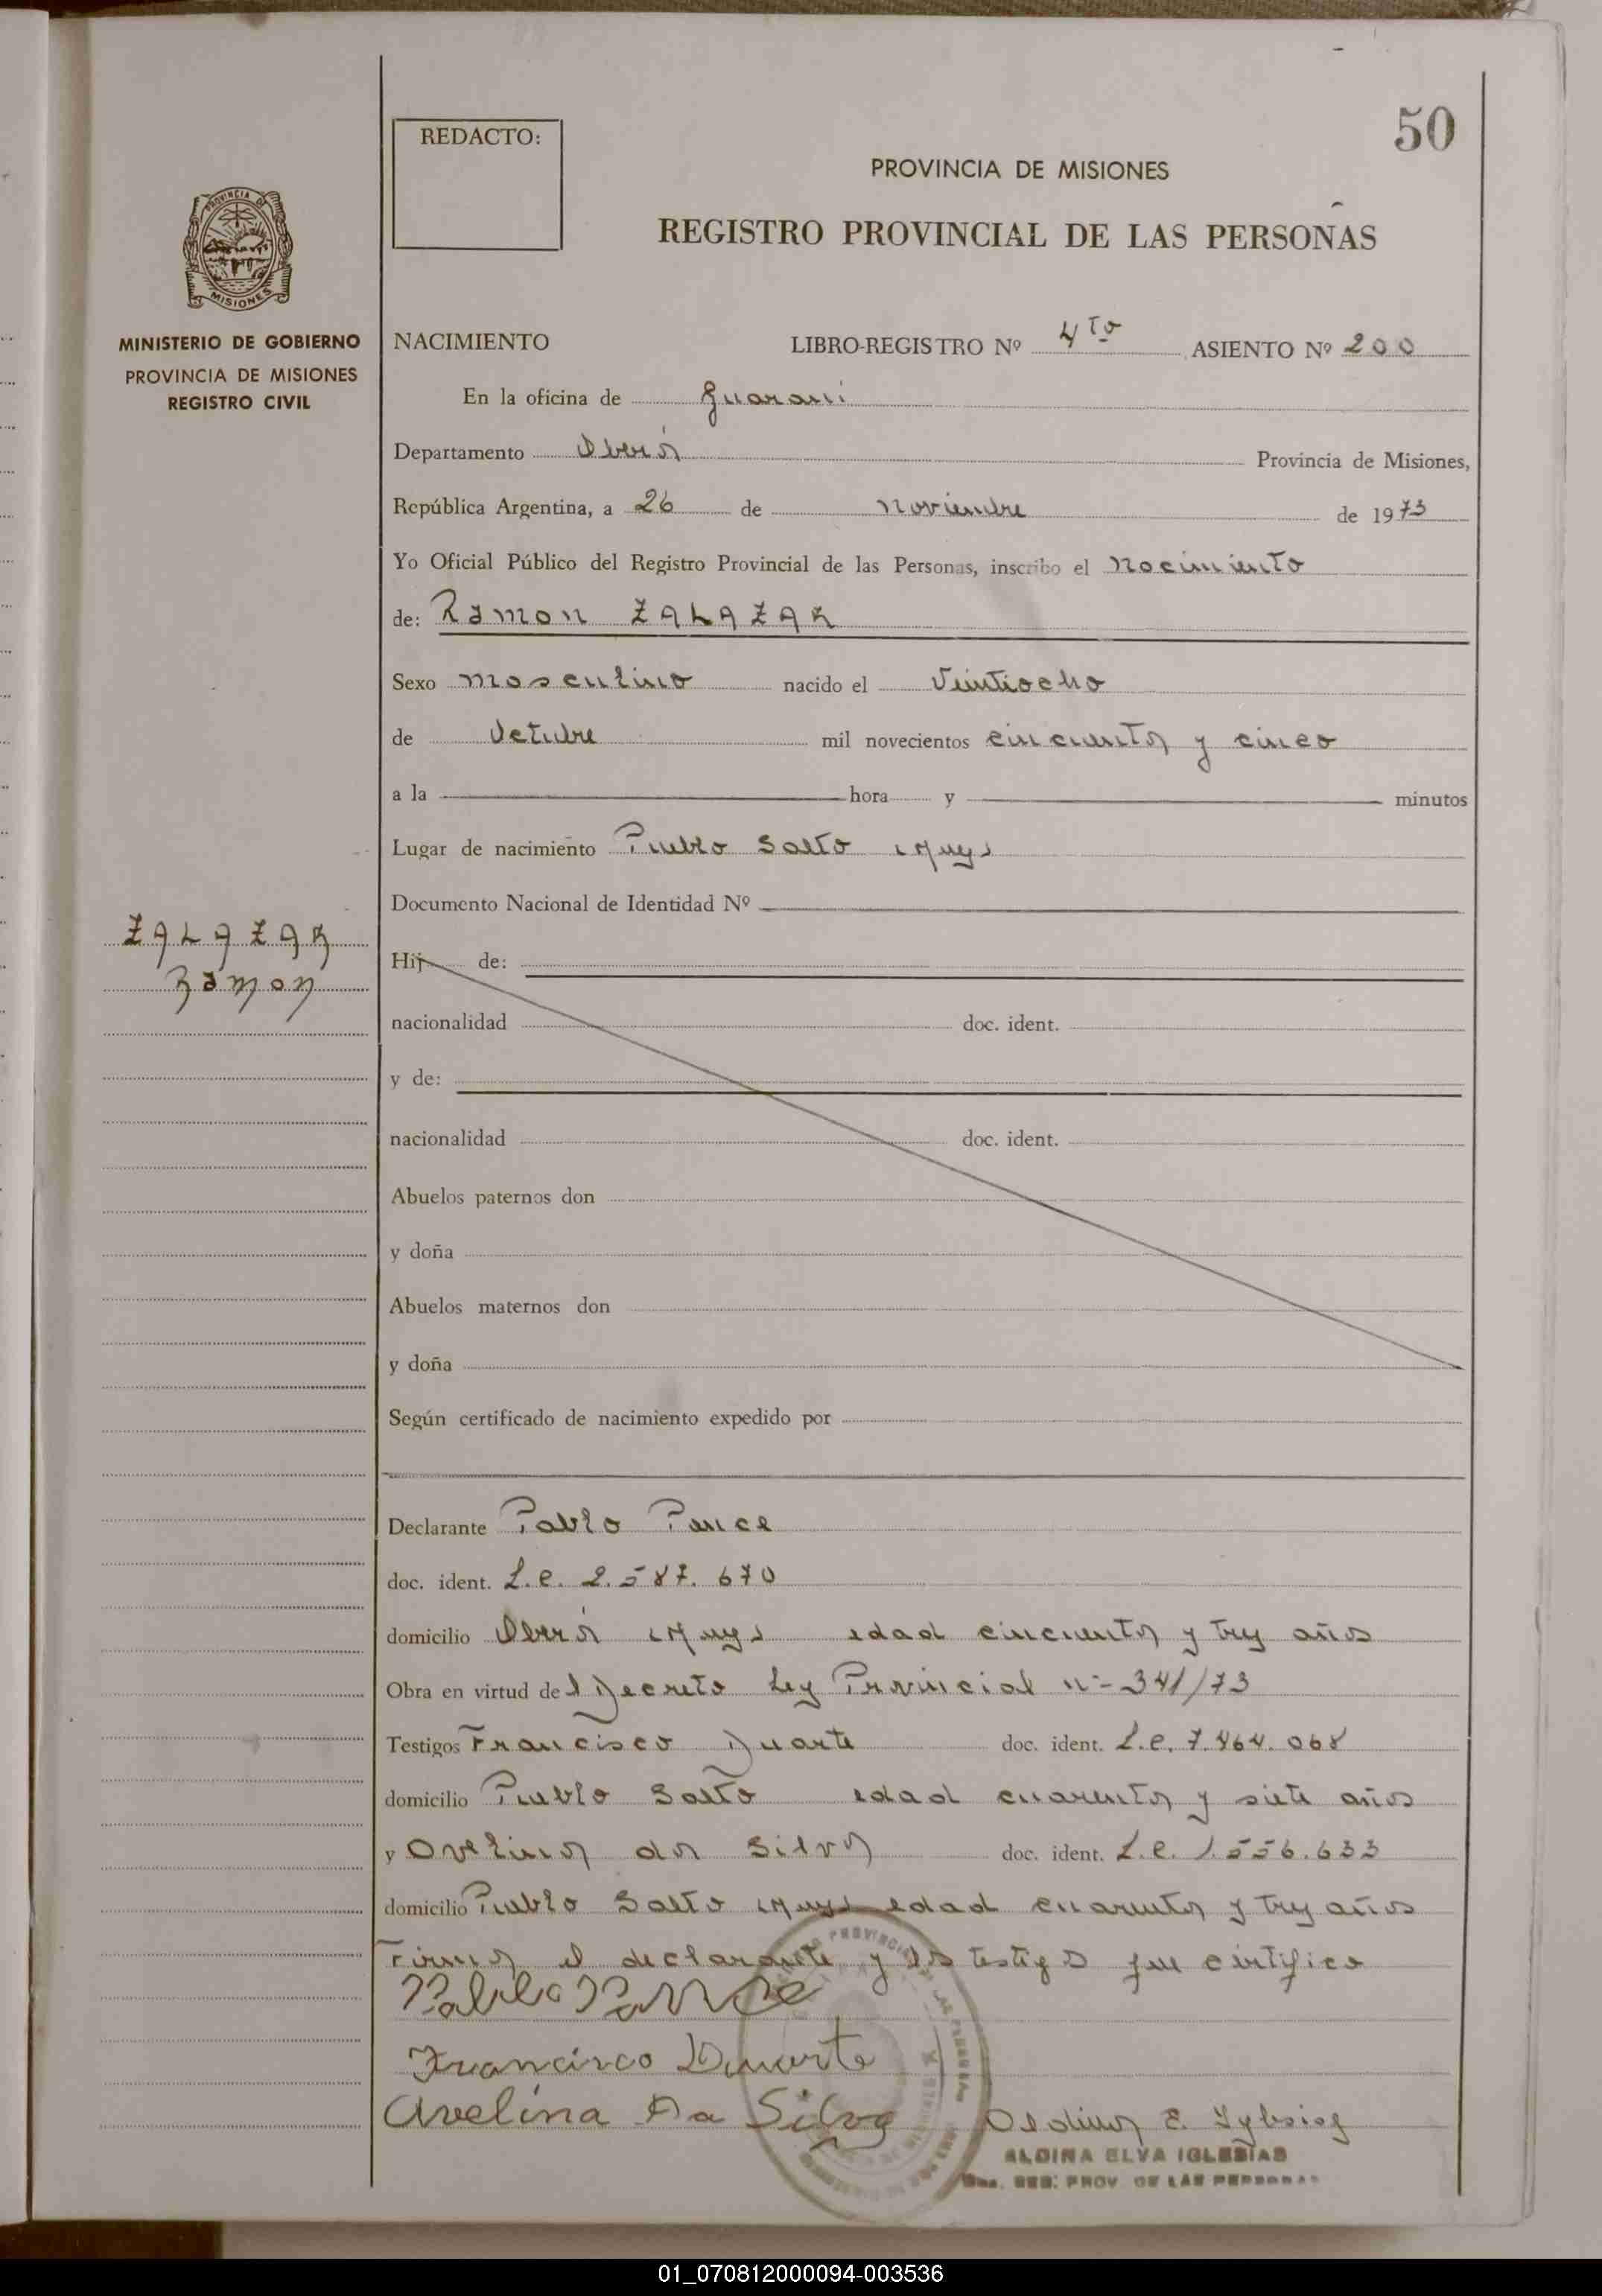 50
REDACTO:
PROVINCIA DE MISIONES
REGISTRO PROVINCIAL DE LAS PERSONAS
PROVINCIA DE
MISIONES
MINISTERIO DE GOBIERNO
PROVINCIA DE MISIONES
REGISTRO CIVIL
NACIMIENTO LIBRO-REGISTRO Nº 4to ASIENTO Nº 200
En la oficina de Guarani
Departamento Oberá Provincia de Misiones,
República Argentina, a 26 de noviembre de 1973
Yo Oficial Público del Registro Provincial de las Personas, inscribo el nacimiento
de: Ramon ZALAZAR
Sexo masculino nacido el veintiocho
de Octubre mil novecientos cincuenta y cinco
a la hora y minutos
Lugar de nacimiento Pueblo Salto
Documento Nacional de Identidad Nº
ZALAZAR
Ramon
Hij de:
nacionalidad doc. ident.
y de:
nacionalidad doc. ident.
Abuelos paternos don
y doña
Abuelos maternos don
y doña
Según certificado de nacimiento expedido por
Declarante Pablo Ponce
doc. ident. L.e. 2.587.670
domicilio Oberá edad cincuenta y tres años
Obra en virtud del Decreto Ley Provincial nº 341/73
Testigos Francisco Duarte doc. ident. L.e. 7.464.068
domicilio Pueblo Salto edad cuarenta y siete años
y Avelina da Silva doc. ident. L.e. 1.556.633
domicilio Pueblo Salto edad cuarenta y tres años
Firma el declarante y los testigos que certifico
Pablo Ponce
Francisco Duarte
Avelina Da Silva
Aldina E. Iglesias
ALDINA ELVA IGLESIAS
REG. PROV. DE LAS PERSONAS
01_070812000094-003536